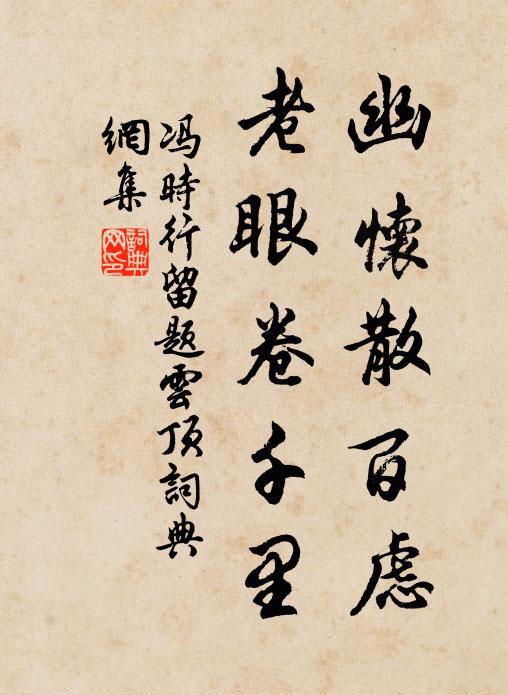 幽懷散百慮
老眼卷千里
冯時行留题雲顶詞典
網集
詞典
网印